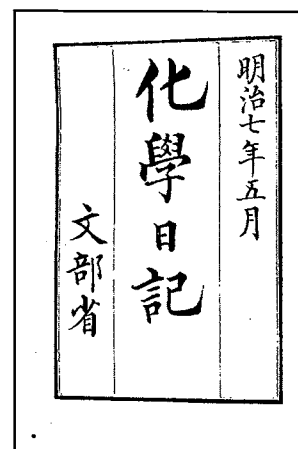 明治七年五月
化學日記
文部省